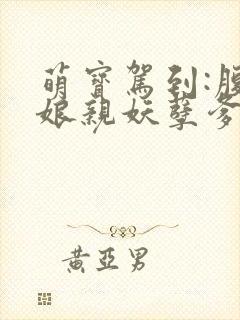 萌寶駕到:腹
娘親妖孽爹
黃亞男